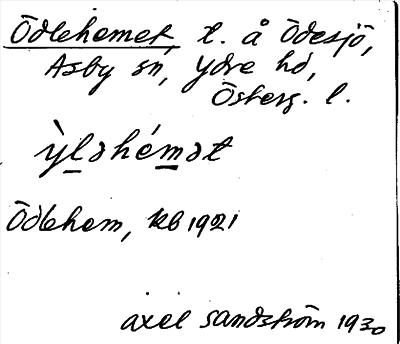 Ödlehemet, t. å Ödesjö,
Asby sn, Ydre hd,
Österg. l.
ỳləhémət
Ödlehem, kb 1921
axel sandström 1930